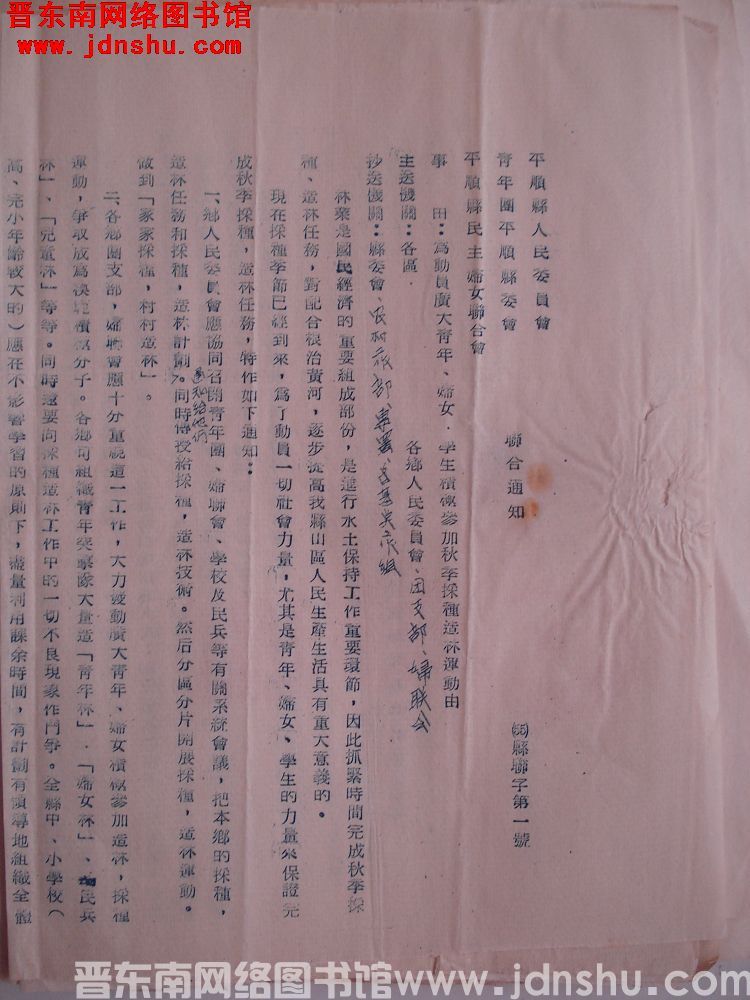 晋东南网络图书馆
www.jdnshu.com
平順縣人民委員會
青年團平順縣委會
平順縣民主婦女聯合會
聯合通知
㊄縣聯字第一號
事　由：為動員廣大青年、婦女、學生積極參加秋季採種造林運動由
主送機關：各區．各鄉人民委員會、团支部、婦联会
抄送機關：縣委會、农村工作部、專署
林業是國民經濟的重要組成部份，是進行水土保持工作重要環節，因此抓緊時間完成秋季採
種、造林任務，對配合根治黃河，逐步提高我縣山區人民生產生活具有重大意義的。
現在採種季節已經到來，為了動員一切社會力量，尤其是青年、婦女、學生的力量來保證完
成秋季採種，造林任務，特作如下通知：
一、鄉人民委員會應協同召開青年團、婦聯會、學校及民兵等有關系統會議，把本鄉的採種，
造林任務和採種，造林計劃通知給他們。同時傳授給採種，造林技術。然后分區分片開展採種，造林運動。
做到「家家採種，村村造林」。
二、各鄉團支部，婦聯會應十分重視這一工作，大力發動廣大青年、婦女積極參加造林，採種
運動，爭取成為綠化積極分子。各鄉可組織青年突擊隊大量造「青年林」．「婦女林」、民兵
林」、「兒童林」等等。同時還要向採種造林工作中的一切不良現象作鬥爭。全縣中、小學校（
高、完小年齡較大的）應在不影響學習的原則下，盡量利用課余時間，有計劃有領導地組織全體
晋东南网络图书馆www.jdnshu.com